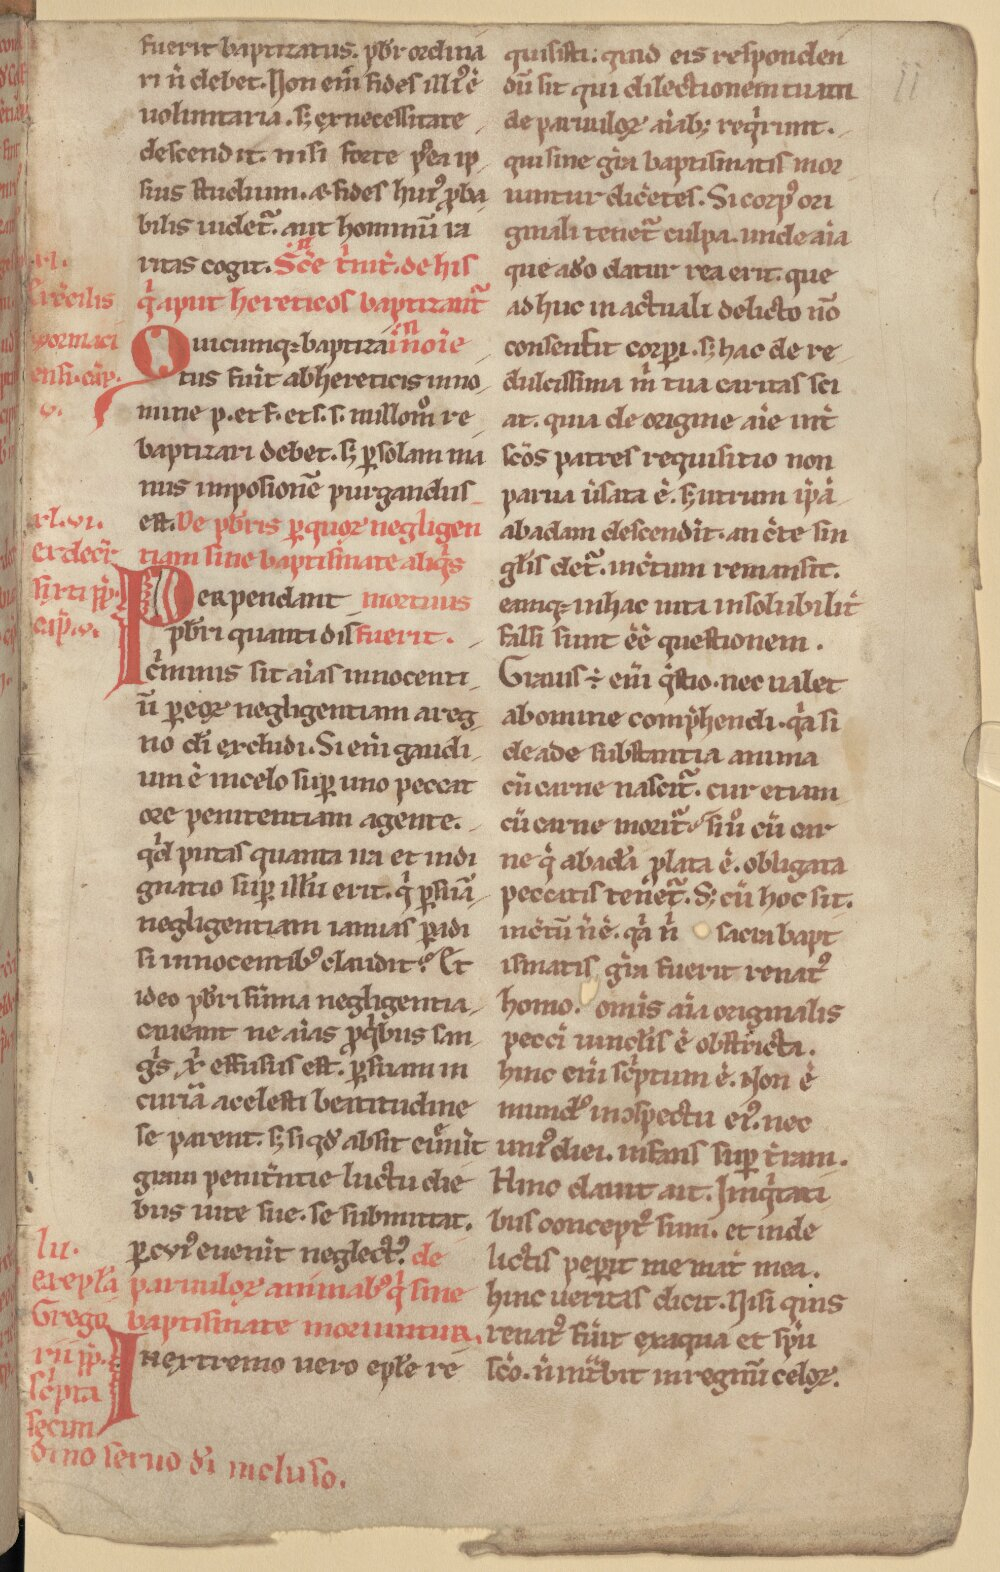 fuerit baptizatus. pb̄r ordina
ri n̄ debet. Non em̄ fides illi᾽ ē
uoluntaria. sꝫ ex necessitate
descendit. nisi forte p̄ea ip
sius studium. & fides hui᾽ ꝓba
bilis uidet᷑. aut hominū ra
ritas cogit. Sc̄e t̄nit̄. de his
q̄ aput hereticos baptizant᷑
in noīe
xl.
Ex c̄cilio
wormaci
ensi. cāp.
v.
Quicumq; baptiza
tus fuīt ab hereticis in no
mine p. et f. et s. s. nullom̊ re
baptizari debet. sꝫ ꝑ solam ma
nus imposionē purgandus
est. De pb̄ris ꝑ quoꝝ negligen
tiam sine baptismate aliq̄s
mortuus
fuerit.
xl.vi.
ex decr̄
sixti pp̄.
cap̄. v.
Perpendant
pb̄ri quanti dis
c̄minis sit aīas innocenti
ū ꝑ eoꝝ negligentiam a reg
no dī excludi. Si em̄ gaudi
um ē in celo sup̄ uno peccat
ore penitentiam agente.
qd̄ putas quanta ira et indi
gnatio sup̄ illū erit. q̄ ꝑ suā
negligentiam ianuas paradi
si innocentib᾽ claudit? Et
ideo pb̄ri sūma negligentia
caueant ne aīas ꝓ q̄bus san
ḡs xp̄i effusus est. ꝑ suam in
curiā a celesti beatitudine
se parent. sꝫ si qd̄ absit euēn̄it
gram penit̄ntie luctu die
bus uite sue. se submittat.
ꝑ cui᾽ euenīt neglect᾽. de
paruuloꝝ animab᾽ q̄ sine
baptismate moriuntur.
lii.
ex epl̄a
Grego
rii pp̄.
sc̄pta
secun
dino seruo dī incluso.
In extremo uero epl̄e re
quisisti: quid eis responden
dū sit qui dilectionem tuam
de paruuloꝝ aīabꝫ req̄runt.
qui sine gr̄a baptismatis mor
iuntur dicētes. Si corp᾽ ori
ginali tenet᷑ culpa. unde aīa
que a dō datur rea erit. que
adhuc in actuali delicto nō
consentit corp̄i. sꝫ hac de re
dulcissima m̄ tua caritas sci
at. quia de origine aīe int̄
sc̄os patres requisitio non
parua ūsata ē. sꝫ utrum ip̄a
ab adam descendīt. an c̄te sin
gl̄is det᷑. inc̄tum remansit.
eamq; in hac uita insolubilit̄
fassi sunt ēē questionem.
Grauis ÷ em̄ q̄stio. nec ualet
ab omine comp̄hendi. q̄a si
de ade substantia anima
cū carne nascit᷑. cur etiam
cū carne morit᷑? si u̅o cū car
ne q̄ ab adā ꝓlata ē. obligata
peccatis tenet᷑. Sꝫ cū hoc sit.
inc̄tū n̄ ē. q̄a n̄ sacra bapt
ismatis gr̄a fuerit renat᾽
homo. omīs aīa originalis
pecc̄i uinclīs ē obstricta.
hinc em̄ sc̄ptum ē. Non ē
mund᾽ in c̄spectu ei᾽. nec
uni᾽ diei. infans sup̄ t̄ram.
Hinc dauit ait. Iniq̄tati
bus concept᾽ sum. et in de
lictis pep̄it me mat̄ mea.
hinc ueritas dicit. Nisi quis
renat᾽ fuīt ex aqua et sp̄u
sc̄o. n̄ int̄bit in regnū celoꝝ.
ii